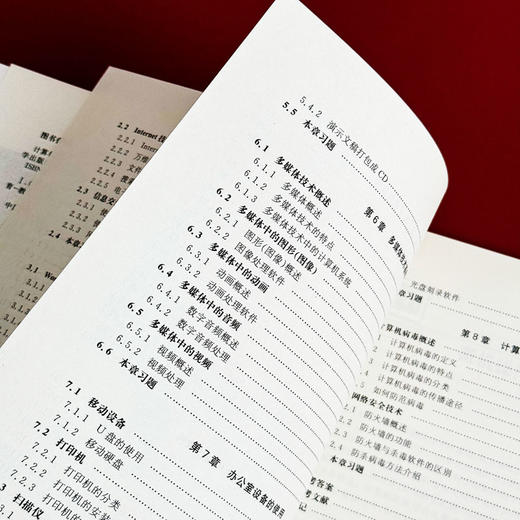 图书
计算
学出版
ISBN
1. ①计
青一教
中
2.2 Internet 技
2.2.1 Inter
2.2.2 万维
2.2.3 文件
2.2.4 搜
2.2.5 电
2.3 信息交
2.3.1
2.4 本章
3.1 Wor
3.1.1
3.1.2
3.1.3
5.4.2 演示文稿打包成CD
5.5 本章习题
第6章 多媒体技术
6.1 多媒体技术概述
6.1.1 多媒体概述
6.1.2 多媒体技术的特点
6.1.3 多媒体技术中的计算机系统
6.2 多媒体中的图形(图像)
6.2.1 图形(图像)概述
6.2.2 图像处理软件
6.3 多媒体中的动画
6.3.1 动画概述
6.3.2 动画处理软件
6.4 多媒体中的音频
6.4.1 数字音频概述
6.4.2 数字音频处理
6.5 多媒体中的视频
6.5.1 视频概述
6.5.2 视频处理
6.6 本章习题
第7章 办公室设备的使用
7.1 移动设备
7.1.1 U盘的使用
7.1.2 移动硬盘
7.2 打印机
7.2.1 打印机的分类
7.2.2 打印机的安装
7.2.3 打印
7.3 扫描仪
光盘刻录软件
本章习题
第8章 计算
计算机病毒概述
计算机病毒的定义
计算机病毒的特点
计算机病毒的分类
计算机病毒的传播途径
如何防范病毒
网络安全技术
2.1 防火墙概述
2.2 防火墙的功能
2.3 防火墙与杀毒软件的区别
2.4 防杀病毒方法介绍
本章习题
考答案
考文献
记